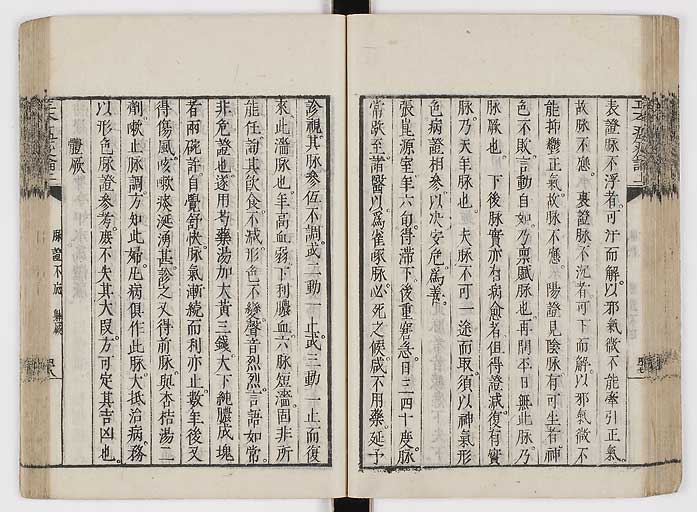 表證脉不浮者可汗而解以邪氣微不能牽引正氣
故脉不應裏證脉不沉者可下而解以邪氣微不
能抑鬱正氣故脉不應陽證見陰脉有可生者神
色不敗言動自如乃稟賦脉也再問本日無此脉乃
脉厥也下後脉實亦有病愈者但得證減復有實
脉乃天年脉也夫脉不可一途而取須以神氣形
色病證相參以决安危爲善
張崑源室年六旬得滯下後重窘急日三四十度脉
常歇至諸醫以爲雀啄脉必死之候咸不用藥延予
診視其脉參伍不調或二動一止或三動一止而復
來此濇脉也年高血弱下利膿血六脉短濇固非所
能任詢其飲食不減形色不變聲音烈烈言語如常
非危證也遂用芍藥湯加大黃三錢大下純膿成塊
者兩碗許自覺舒快脉氣漸續而利亦止數年後又
得傷風咳嗽痰涎湧甚診之又得前脉與杏桔湯二
劑嗽止脉調方知此婦凡病俱作此脉大抵治病務
以形色脉證參考庶不失其大叚方可定其吉凶也
體厥
脉證不應 體厥